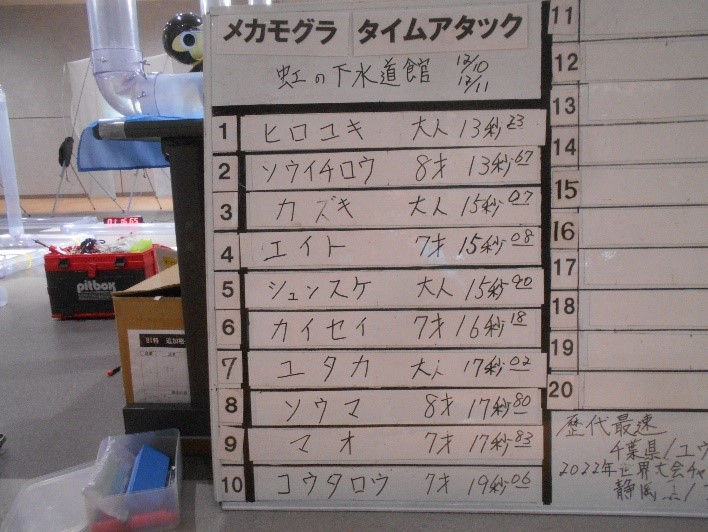 メカモグラ タイムアタック
虹の下水道館 12/10 12/11
1 ヒロユキ 大人 13秒23
2 ソウイチロウ 8才 13秒67
3 カズキ 大人 15秒07
4 エイト 7才 15秒08
5 シュンスケ 大人 15秒90
6 カイセイ 7才 16秒18
7 ユタカ 大人 17秒02
8 ソウマ 8才 17秒80
9 マオ 7才 17秒83
10 コウタロウ 7才 19秒06
11
12
13
14
15
16
17
18
19
20
歴代最速
千葉県/ユウ
2022年世界大会チャ
静岡県/
pitbox